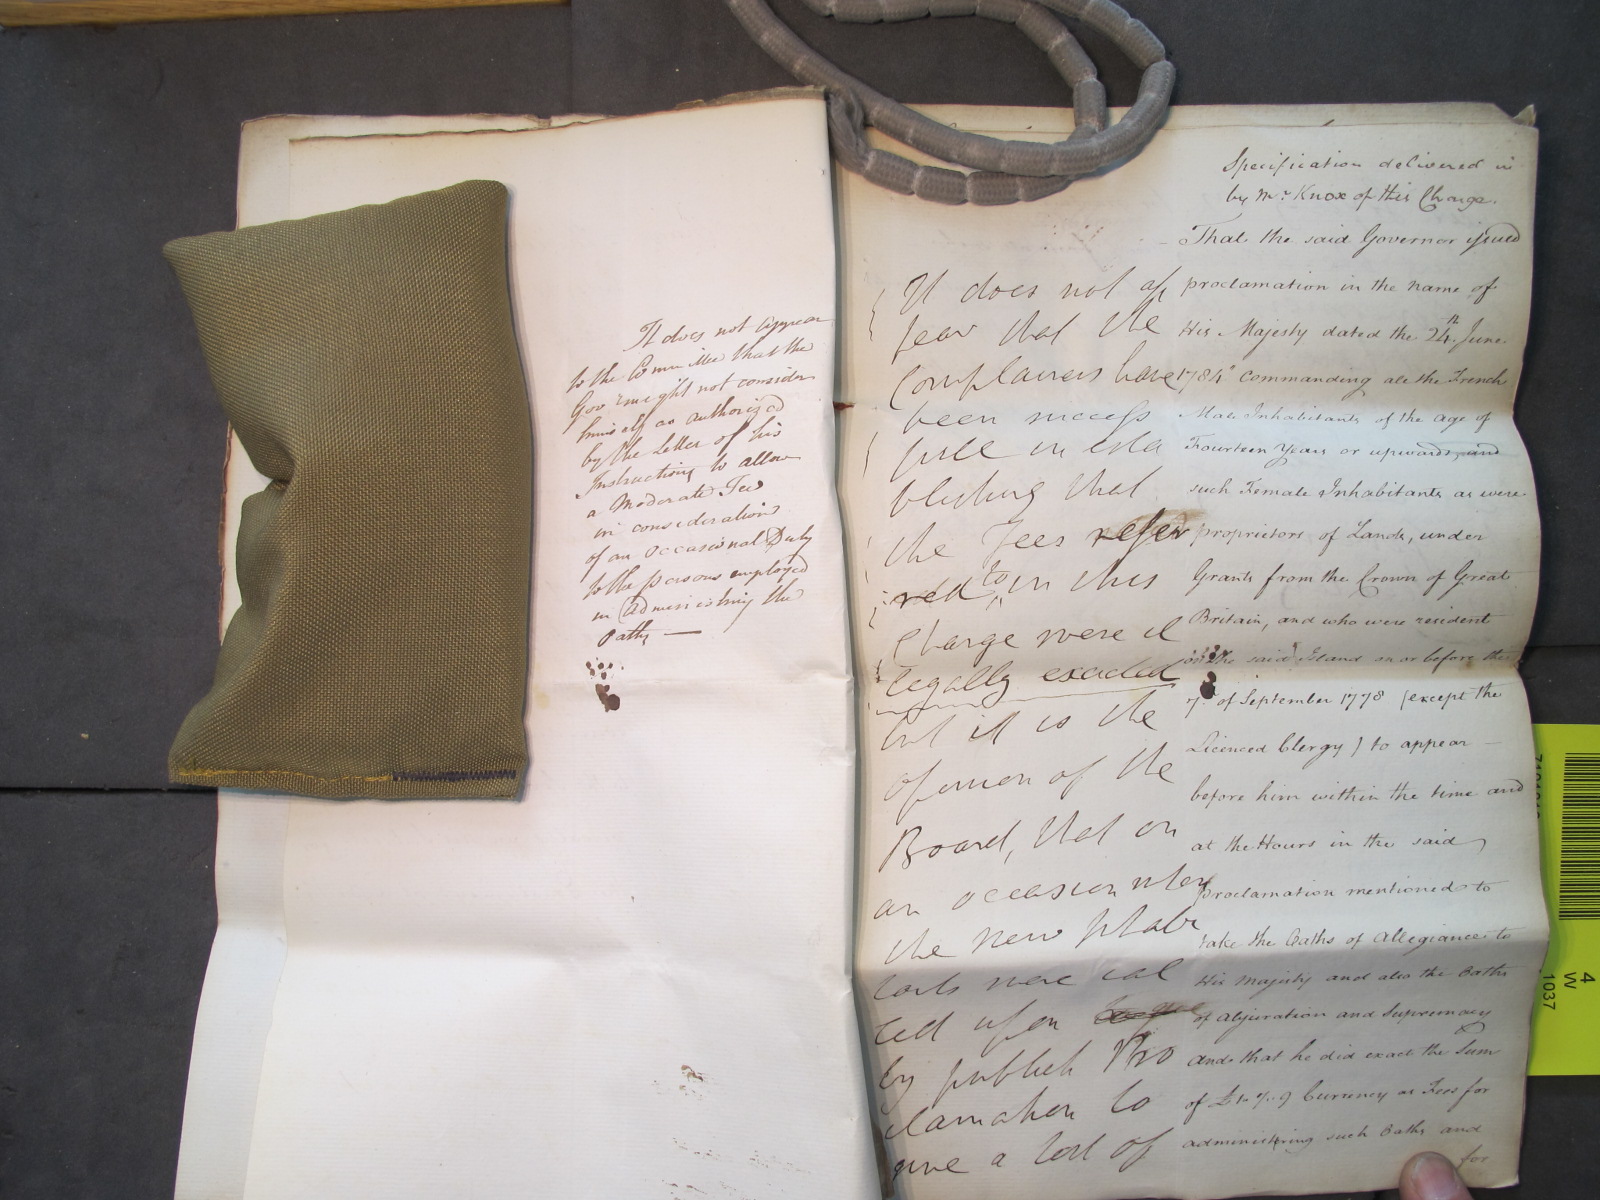 It does not appear
to the Committee that the
Gov.r might not consider
himself as authorized
by the Letter of his
Instructions to allow
a Moderate Fee
in consideration
of an Occasional Duty
to the persons employed
in Administring the
Oaths —
It does not ap
pear that the
Complainers have
been success
full in esta
blishing that
the Fees refer
red to, in this
Charge were il
legally exacted
but it is the
opinion of the
Board, that on
an occasion when
the new
were cal
led upon
by publick Pro
clamation to
give a test of
Specification delivered in
by Mr. Knox of this Charge.
That the said Governor issued
proclamation in the name of
His Majesty dated the 24th June
1784 commanding all the French
Male Inhabitants of the age of
Fourteen Years or upwards, and
such Female Inhabitants as were
proprietors of Lands, under
Grants from the Crown of Great
Britain, and who were resident
on the said Island on or before the
7th of September 1778 (except the
Licenced Clergy) to appear
before him within the time and
at the Hours in the said
proclamation mentioned to
take the Oaths of Allegiance to
His Majesty and also the Oaths
of Abjuration and Supremacy
and that he did exact the Sum
of Currency as Fees for
administring such Oaths and
for
4
W
1037